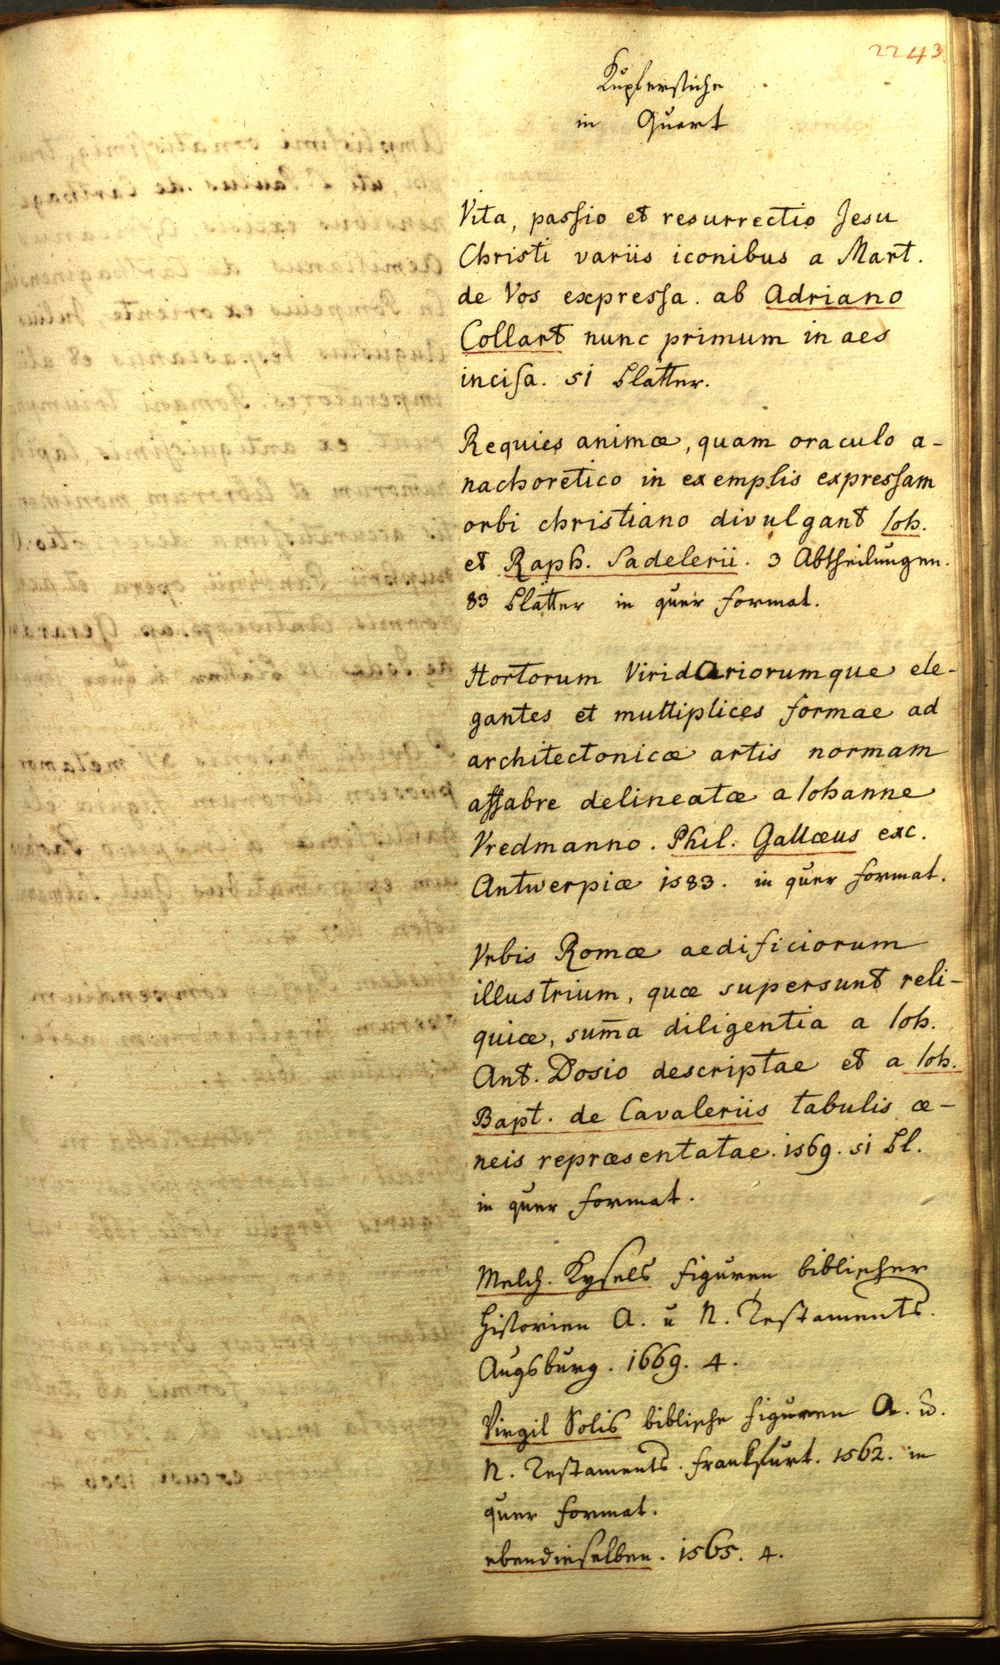 2243
Kupferstiche
in Quart
Vita, passio et resurrectio Jesu
Christi variis iconibus a Mart.
de Vos expressa. ab Adriano
Collart nunc primum in aes
incisa. 51 Blätter.
Requies animæ, quam oraculo a-
nachoretico in exemplis expressam
orbi christiano divulgant Ioh.
et Raph. Sadelerii. 3 Abtheilungen.
83 Blätter in quer format.
Hortorum Viridariorumque ele-
gantes et multiplices formae ad
architectonicæ artis normam
affabre delineatæ a Iohanne
Vredmanno. Phil. Gallæus exc.
Antwerpiæ 1583. in quer format.
Vrbis Romæ aedificiorum
illustrium, quæ supersunt reli-
quiæ, sum̄a diligentia a Ioh.
Ant. Dosio descriptae et a Ioh.
Bapt. de Cavaleriis tabulis æ-
neis repræsentatae. 1569. 51 Bl.
in quer format.
Melch. Kysels Figuren biblischer
Historien A. u N. Testaments.
Augsburg. 1669. 4.
Virgil Solis biblische Figuren A. u.
N. Testaments. Frankfurt. 1562. in
quer format.
ebendieselben. 1565. 4.